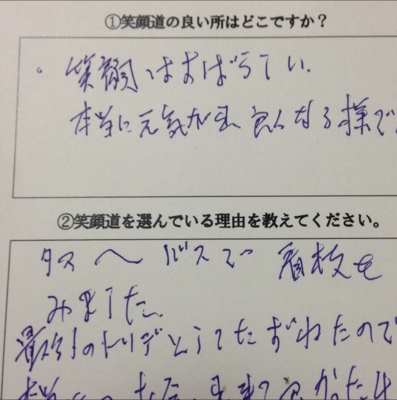 ①笑顔道の良い所はどこですか？
笑顔はすばらしい.
本当に元気が出 良くなる様で
②笑顔道を選んでいる理由を教えてください。
バスで 看板を
みました.
最後のトリデとしてたずねたので